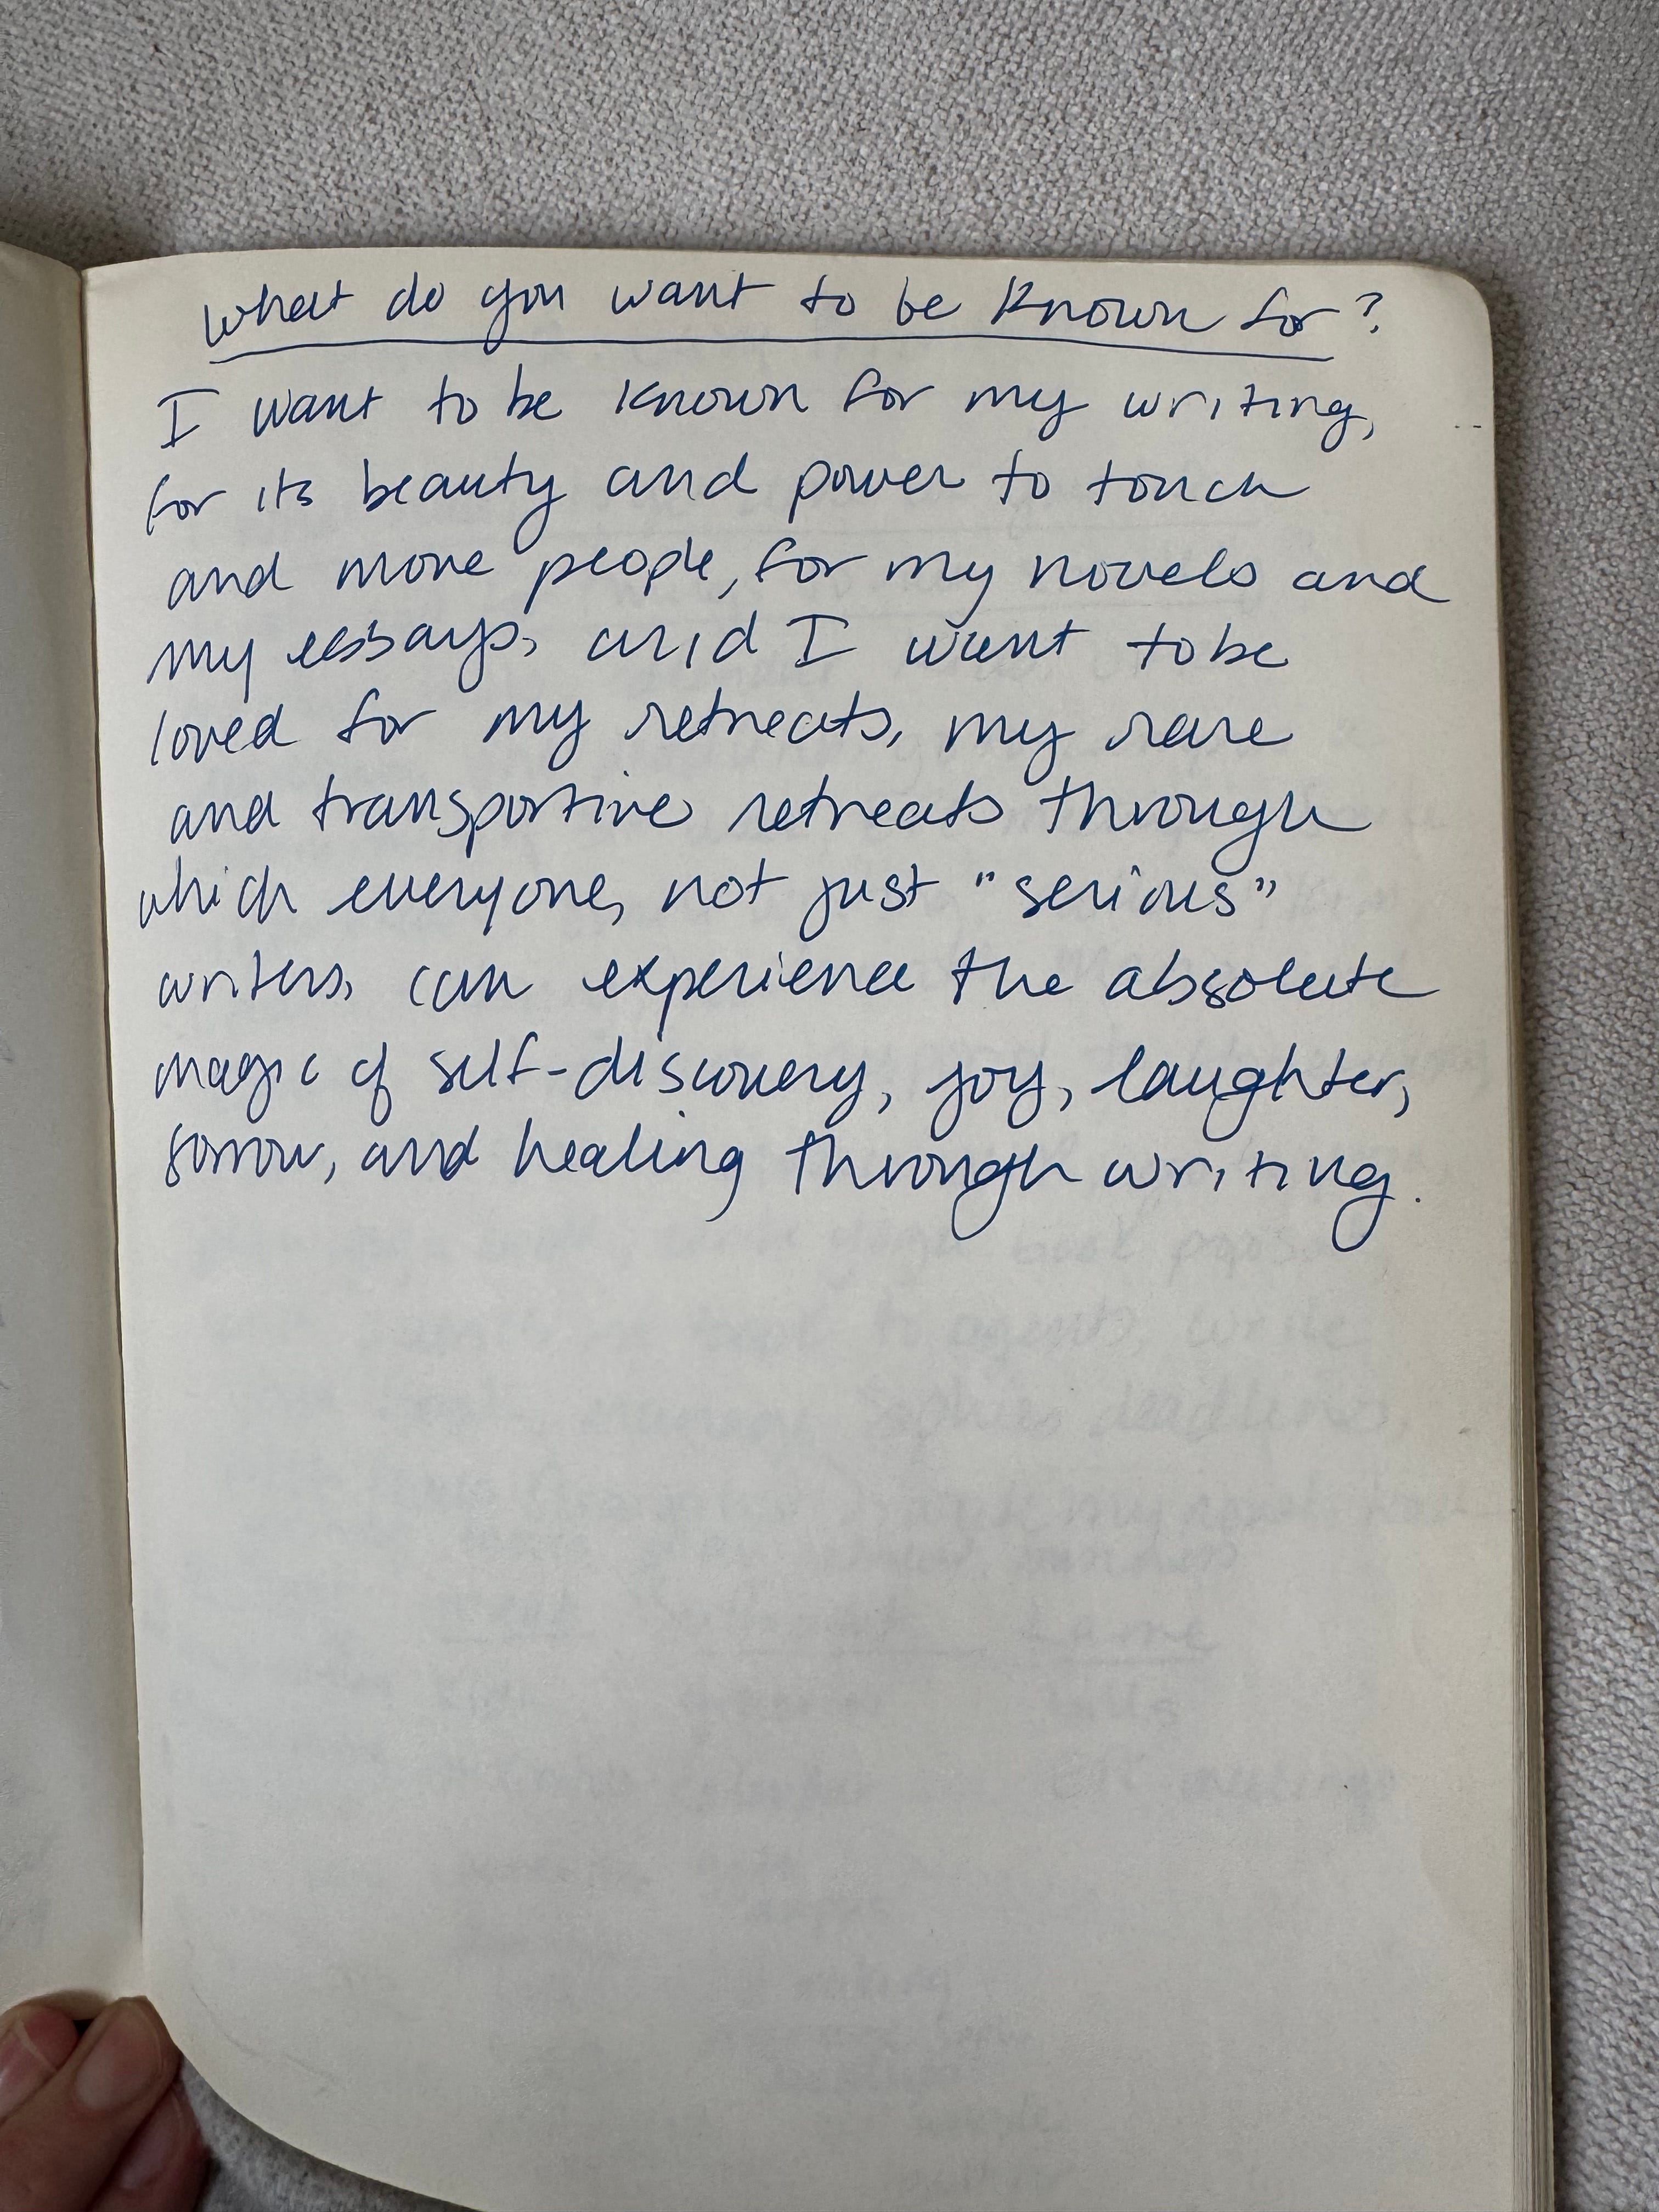 What do you want to be known for?
I want to be known for my writing,
for its beauty and power to touch
and move people, for my novels and
my essays, and I want to be
loved for my retreats, my rare
and transportive retreats through
which everyone, not just "serious"
writers, can experience the absolute
magic of self-discovery, joy, laughter,
sorrow, and healing through writing.